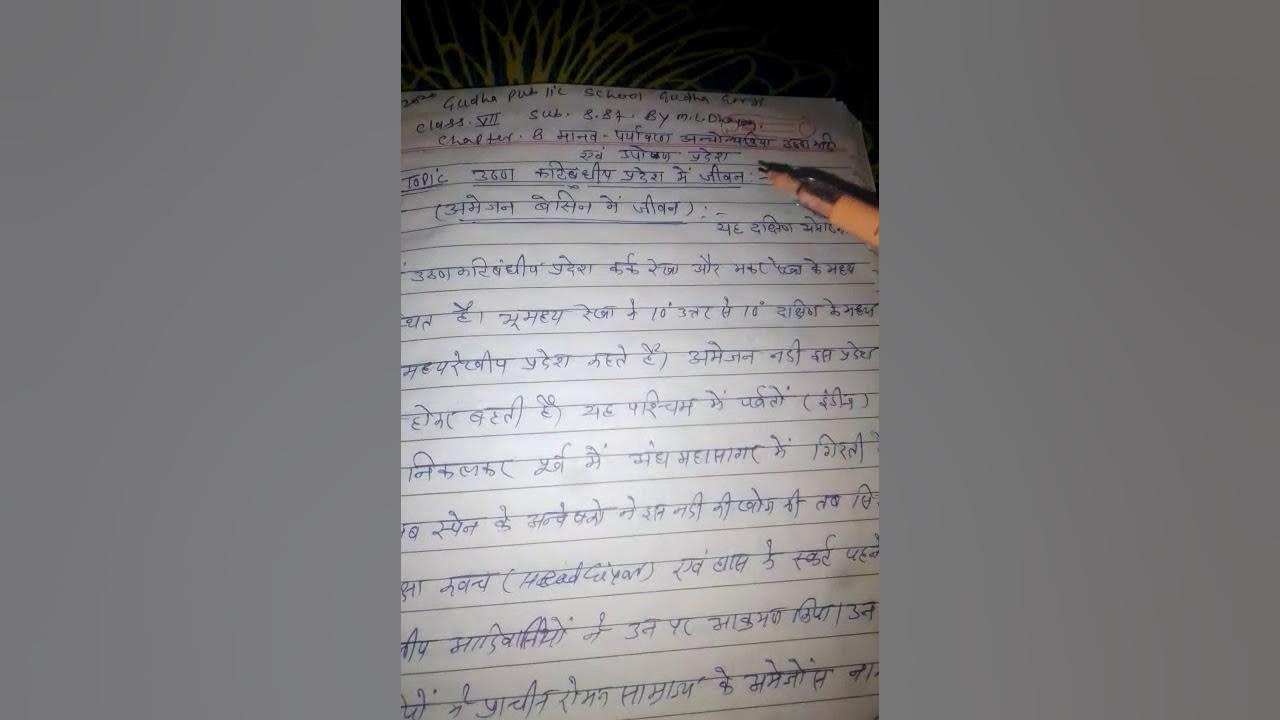 Gudha Public School Gudha Gorji
Class. VII Sub. S.St. By M.L Dhayal.
Chapter. 8 मानव - पर्यावरण अन्योन्यक्रिया उष्ण कटि
एवं उपोष्ण प्रदेश
Topic उष्ण कटिबंधीय प्रदेश में जीवन :-
(अमेजन बेसिन में जीवन) :-
यह दक्षिण
उष्ण कटिबंधीय प्रदेश कर्क रेखा और मकर रेखा के मध्य
है। भूमध्य रेखा के 10° उत्तर से 10° दक्षिण के मध्य
मध्यरेखीय प्रदेश कहते है। अमेजन नदी इस प्रदेश
होकर बहती है। यह पश्चिम में पर्वतों (इंडीज)
निकलकर पूर्व में अंध महासागर में गिरती
स्पेन के अन्वेषको ने इस नदी की खोज की तब
कवच एवं घास के स्कर्ट पहने
आदिवासियों ने उन पर आक्रमण किया। उन
ने प्राचीन रोमन साम्राज्य के अमेजोंस